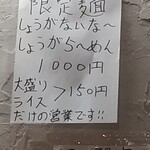 限定麺
しょうがないな〜
しょうがらーめん
1000円
大盛り
ライス >150円
だけの営業です!!